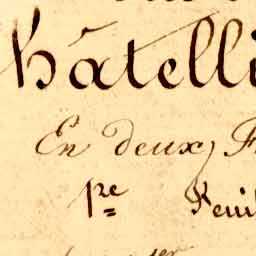 hâtelli
En deux F
1re Feui